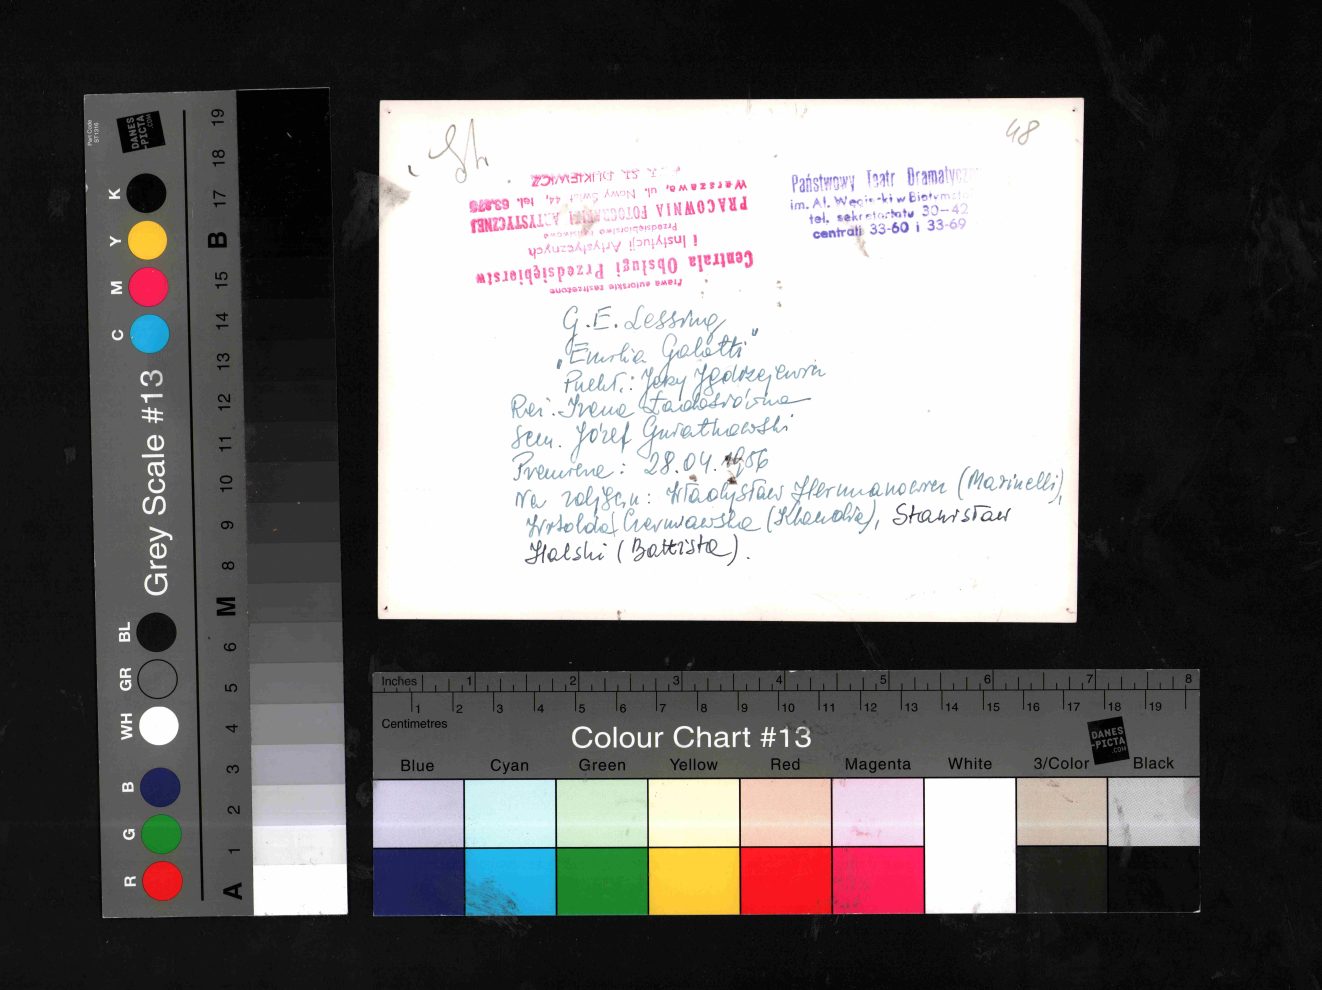 48
Państwowy Teatr Dramatyczn
im. Al. Węgierki w Białymsto
tel. sekretariatu 30-42
centrali 33-60 i 33-69
Prawa autorskie zastrzeżone
Centrala Obsługi Przedsiębiorstw
i Instytucji Artystycznych
Przedsiębiorstwo Państwowe
PRACOWNIA FOTOGRAFII ARTYSTYCZNEJ
Warszawa, ul. Nowy Świat 44, tel. 63.275
DUKIEWICZ
G.E. Lessing
„Emilia Galotti"
Jerzy Jędrzejewicz
Reż. Irena Ładosiówna
Scen. Józef Gwiatkowski
Premiera: 28.04.1956
Na zdjęciu: Władysław Hermanowicz (Marinelli),
Witolda Czerniawska (Klaudia), Stanisław
Halski (Battista).
Part Code
ST1316
DANES
-PICTA
.COM
K
Y
M
C
Grey Scale #13
BL
GR
WH
B
G
R
19
18
17
B
15
14
13
12
11
10
9
8
M
6
5
4
3
2
1
A
Inches 1 2 3 4 5 6 7 8
1 2 3 4 5 6 7 8 9 10 11 12 13 14 15 16 17 18 19
Centimetres
Colour Chart #13
DANES
-PICTA
.COM
Blue Cyan Green Yellow Red Magenta White 3/Color Black